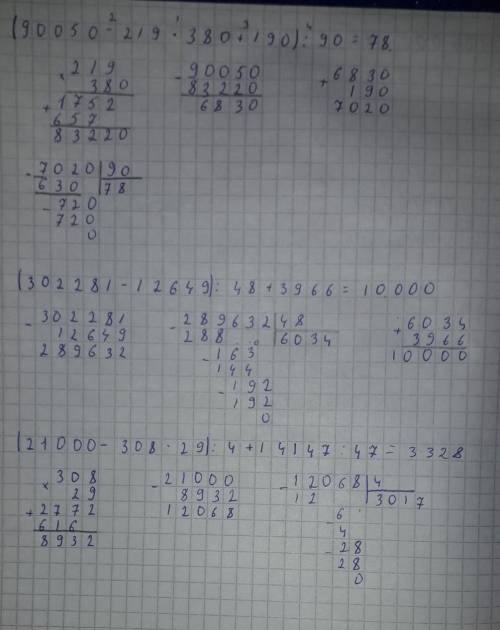 (90050 - 219 · 380 + 190) : 90 = 78
2 1 3 4
× 219
380
+ 1752
657
83220
- 90050
83220
6830
+ 6830
190
7020
- 7020 | 90
630 | 78
- 720
720
0
(302281 - 12649) : 48 + 3966 = 10.000
- 302281
12649
289632
- 289632 | 48
288 | 6034
- 163
144
- 192
192
0
+ 6034
3966
10000
(21000 - 308 · 29) : 4 + 14147 : 47 = 3328
× 308
29
+ 2772
616
8932
- 21000
8932
12068
- 12068 | 4
12 | 3017
- 6
4
- 28
28
0